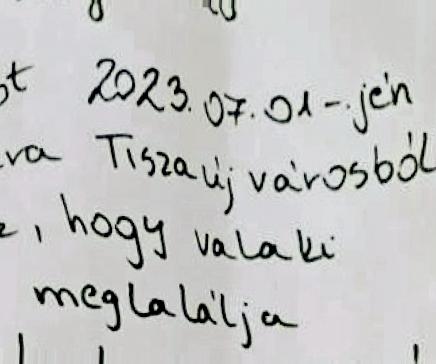 2023.07.01-.jén
Tiszaújvárosból
, hogy valaki
meglalálja